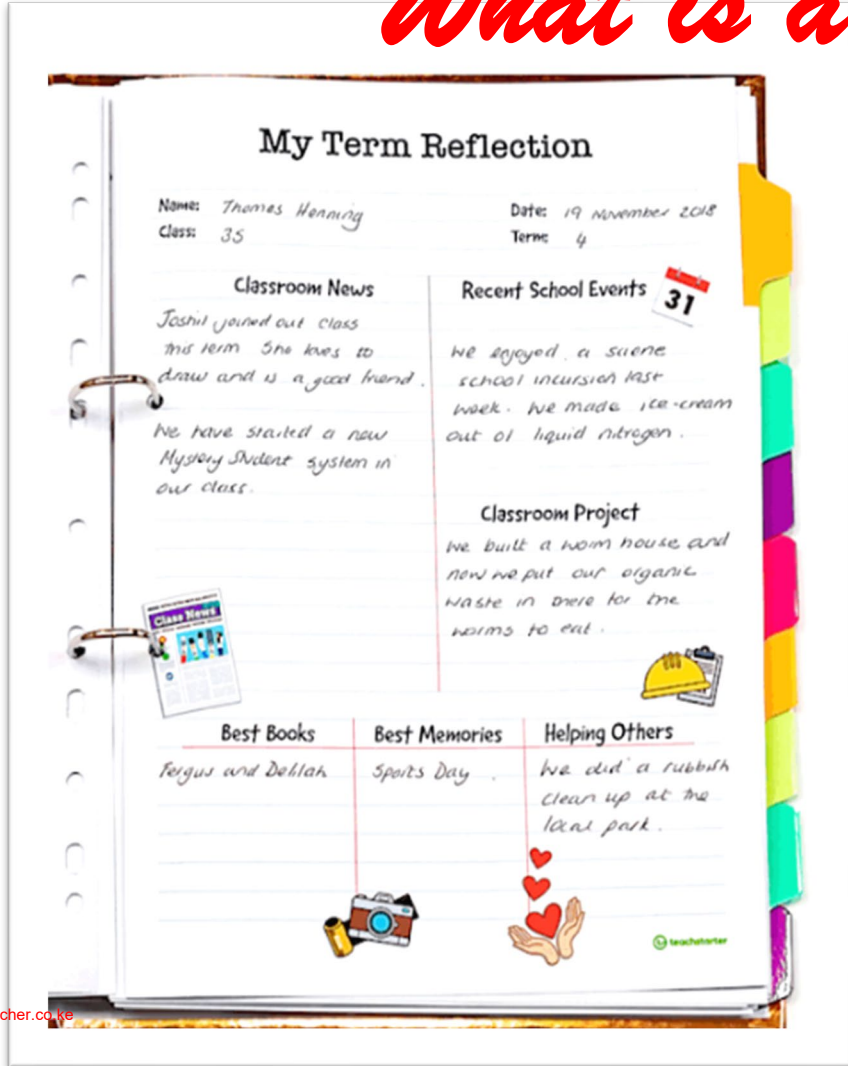 What is a
My Term Reflection
Name: Thomas Henning
Class: 3S
Date: 19 November 2018
Term: 4
Classroom News
Joshil joined out class
this term She loves to
draw and is a good friend.
We have started a new
Mystery Student system in
our class.
Recent School Events
31
We enjoyed a sciene
school incursion last
week. We made ice-cream
out of liquid nitrogen.
Classroom Project
We built a worm house and
now we put our organic
waste in there for the
worms to eat.
Class News
Best Books
Fergus and Delilah
Best Memories
Sports Day.
Helping Others
We did a rubbish
clean up at the
local park.
teachstarter
cher.co.ke